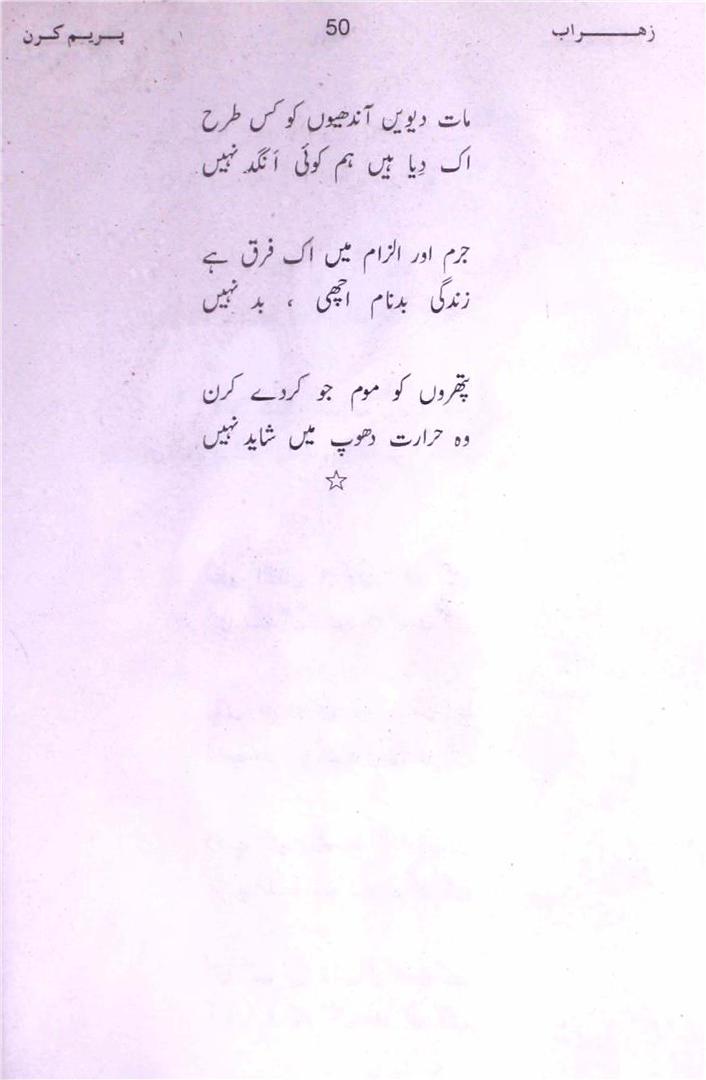 زهراب 50 پریم کرن
مات دیویں آندھیوں کو کس طرح
اک دِیا ہیں ہم کوئی اَنگد نہیں
جرم اور الزام میں اک فرق ہے
زندگی بدنام اچھی ، بد نہیں
پتھروں کو موم جو کردے کرن
وہ حرارت دھوپ میں شاید نہیں
☆